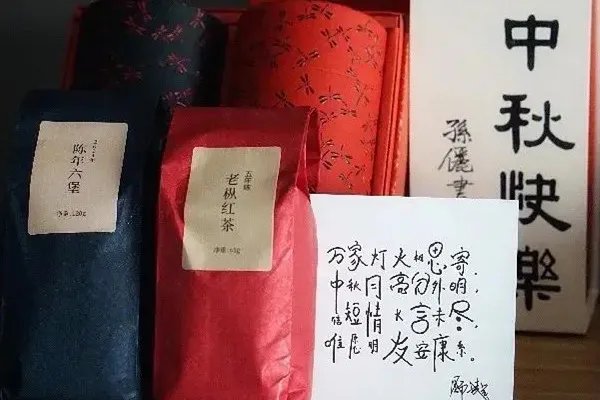 陈年六堡
净重:120g
五年陈
老枞红茶
中秋快樂
孫儷書
万家灯火相思寄，
中秋月高分外明，
信短情长言未尽，
唯愿朋友安康系。